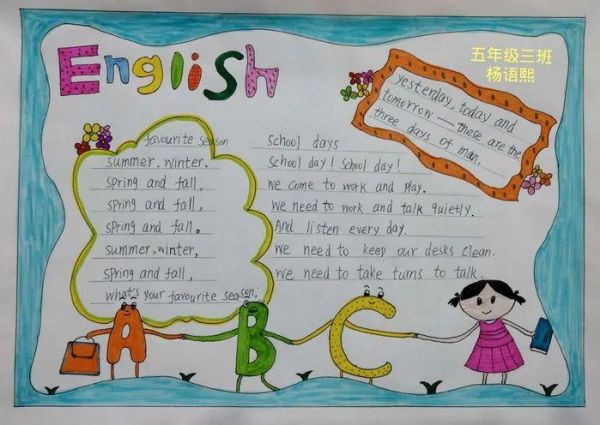 English
五年级三班
杨语熙
yesterday, today and
tomorrow — these are the
three days of man.
favourite season
summer, winter.
spring and fall,
spring and fall,
spring and fall.
summer, winter,
spring and fall,
what's your favourite season.
School days
School day! School day!
we come to work and play.
we need to work and talk quietly.
And listen every day.
we need to keep our desks clean.
we need to take turns to talk.
A B C